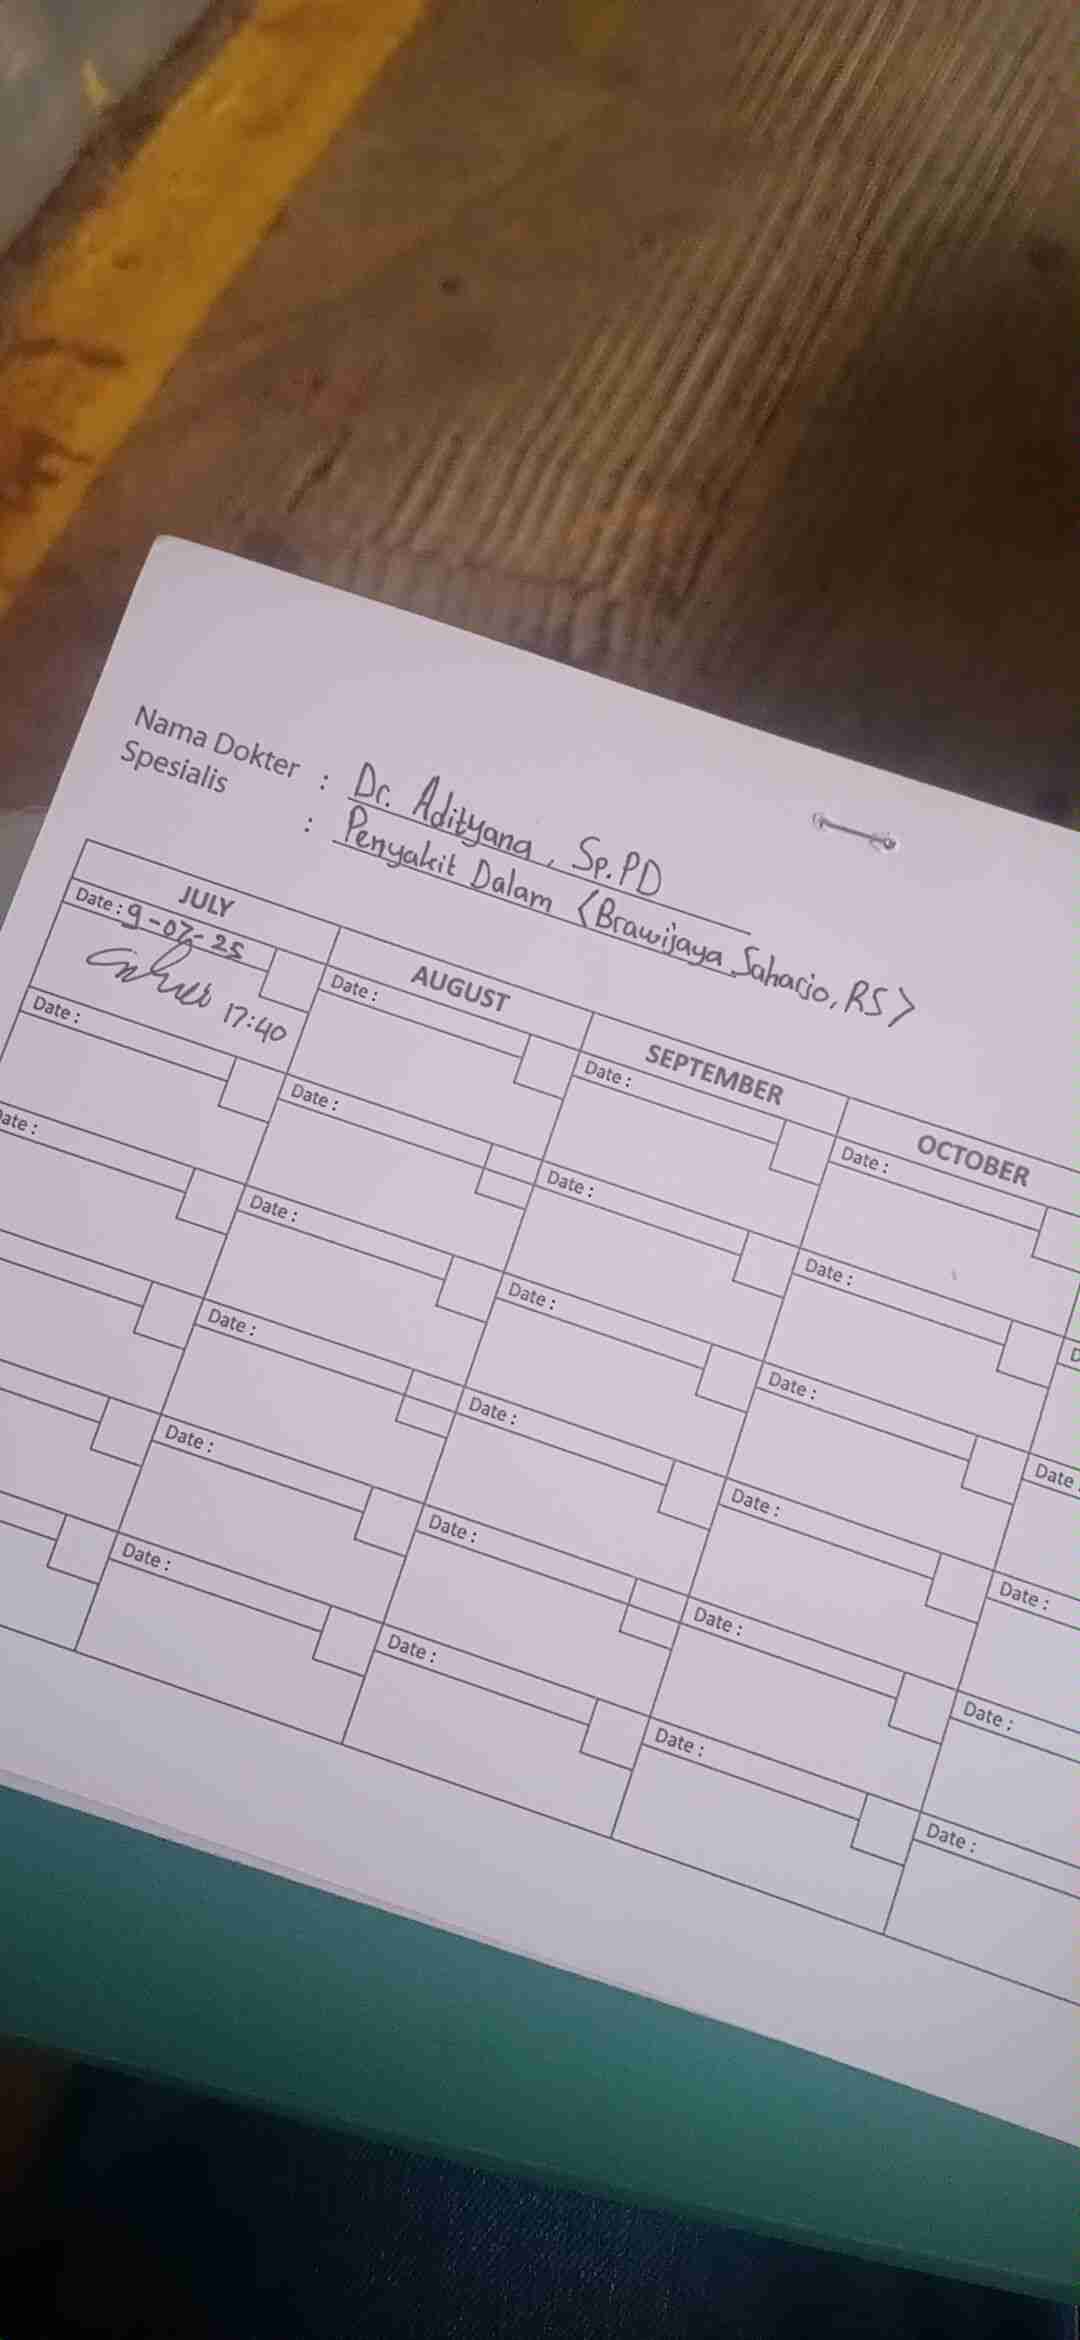 Nama Dokter : Dr. Adityana, Sp.PD
Spesialis : Penyakit Dalam (Brawijaya Saharjo, RS)
JULY AUGUST SEPTEMBER OCTOBER
Date : 9-07-25 Date : Date : Date :
17:40
Date : Date : Date : Date :
Date : Date : Date : Date : Date
Date : Date : Date : Date :
Date : Date : Date : Date :
Date : Date : Date : Date :